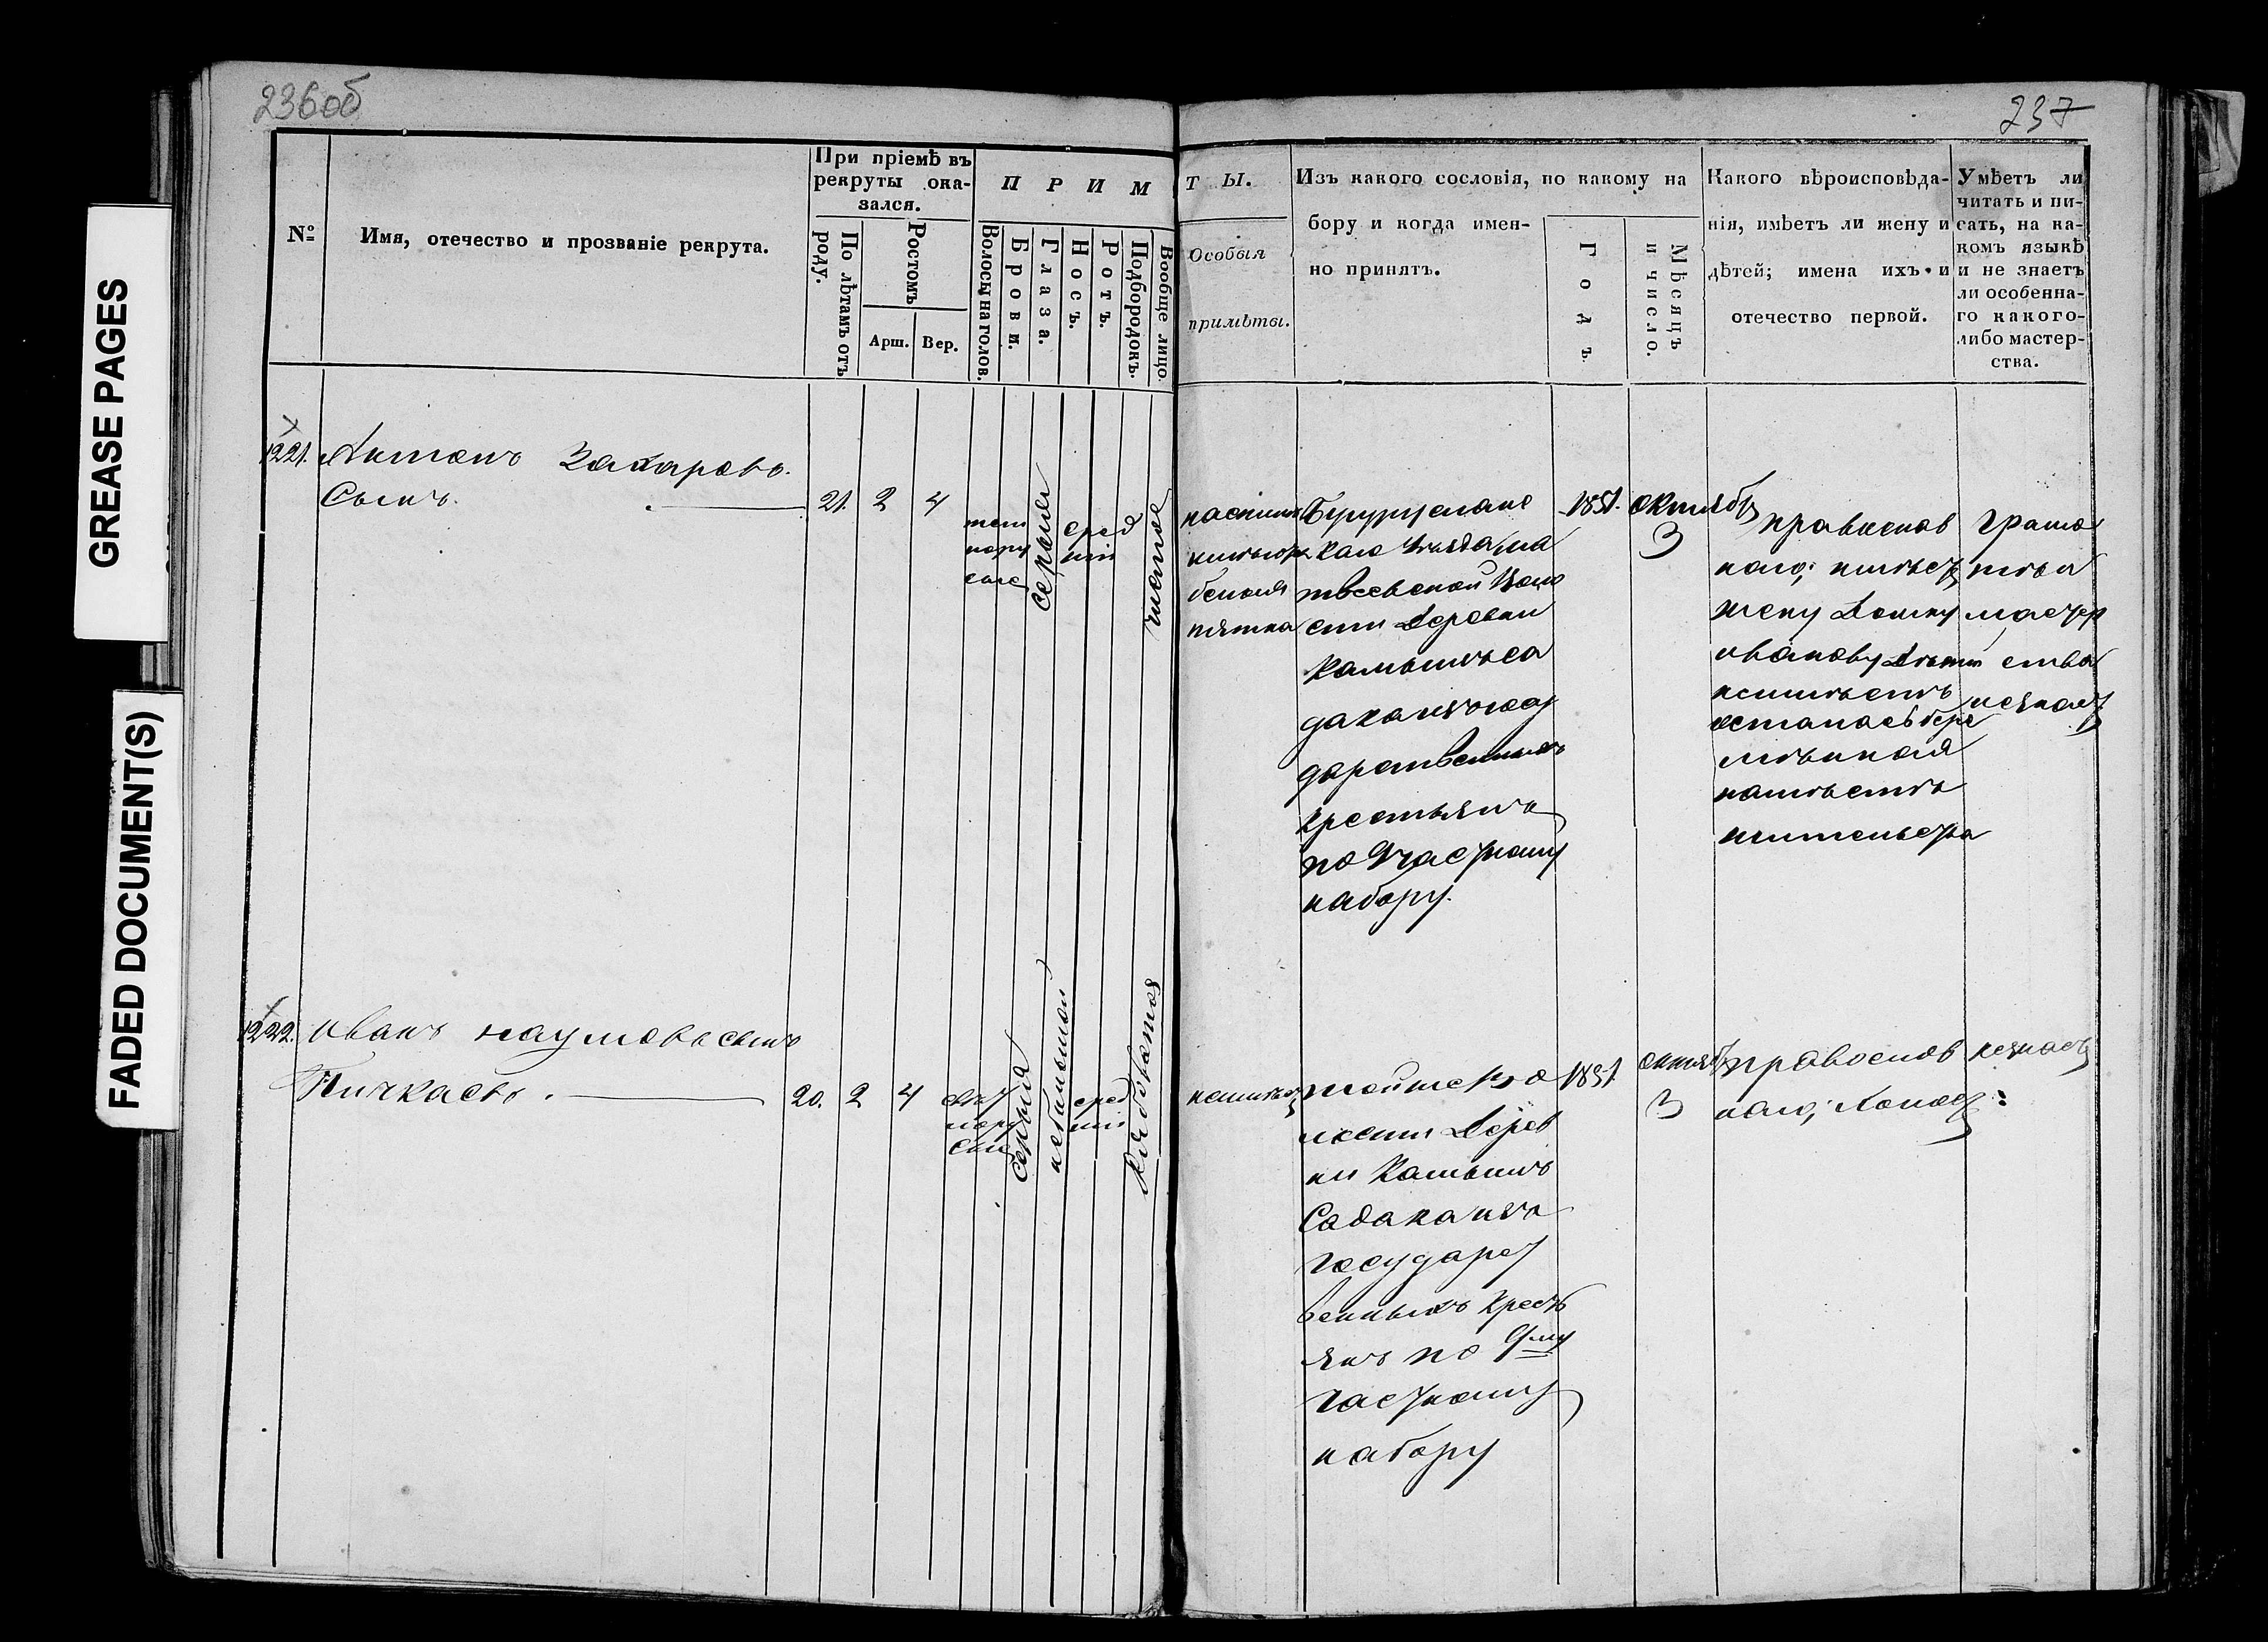 236об
237
GREASE PAGES
FADED DOCUMENT(S)
№
Имя, отечество и прозваніе рекрута.
При пріемѣ въ
рекруты ока-
зался.
По лѣтамъ отъ
роду.
Ростомъ
Арш. Вер.
ПРИМ
Волосы на голов.
Брови.
Глаза.
Носъ.
Ротъ.
Подбородокъ.
Вообще лицо.
ТЫ.
Особыя
примѣты.
Изъ какого сословія, по какому на
бору и когда имен-
но принятъ.
Годъ.
Мѣсяцъ
и число.
Какого вѣроисповѣда-
нія, имѣетъ ли жену и
дѣтей; имена ихъ и
отечество первой.
Умѣетъ ли
читать и пи-
сать, на ка-
комъ языкѣ
и не знаетъ
ли особенна-
го какого-
либо мастер-
ства.
1221. Антонъ Захаровъ.
Сынъ.
21. 2 4
темно
русые
серые
сред
ніи
чистое
Бугурусланс
каго Уѣзда Ма
твеевской Воло
сти Деревни
Камышъ са
дака изъ госу
дарственныхъ
крестьянъ
по 9 частному
набору.
1851. октябр
3
православ
наго; имѣет
жену Домну
иванову Дѣтей
неимѣетъ
осталась бере
мѣнная
намѣстѣ
жительства
грамо
тѣ и
мастер
ства
незнает
1222. иванъ наумовъ сынъ
Пичкаевъ.
20. 2 4
свѣт
лору
сые
серые
небольшой
сред
ніи
Рябоватое
неимѣет
тойже Во
лости Дерев
ни Камышъ
Садака изъ
государст
венныхъ Кресть
янъ по 9му
частному
набору
1851.
октяб
3
православ
наго; холост
незнает